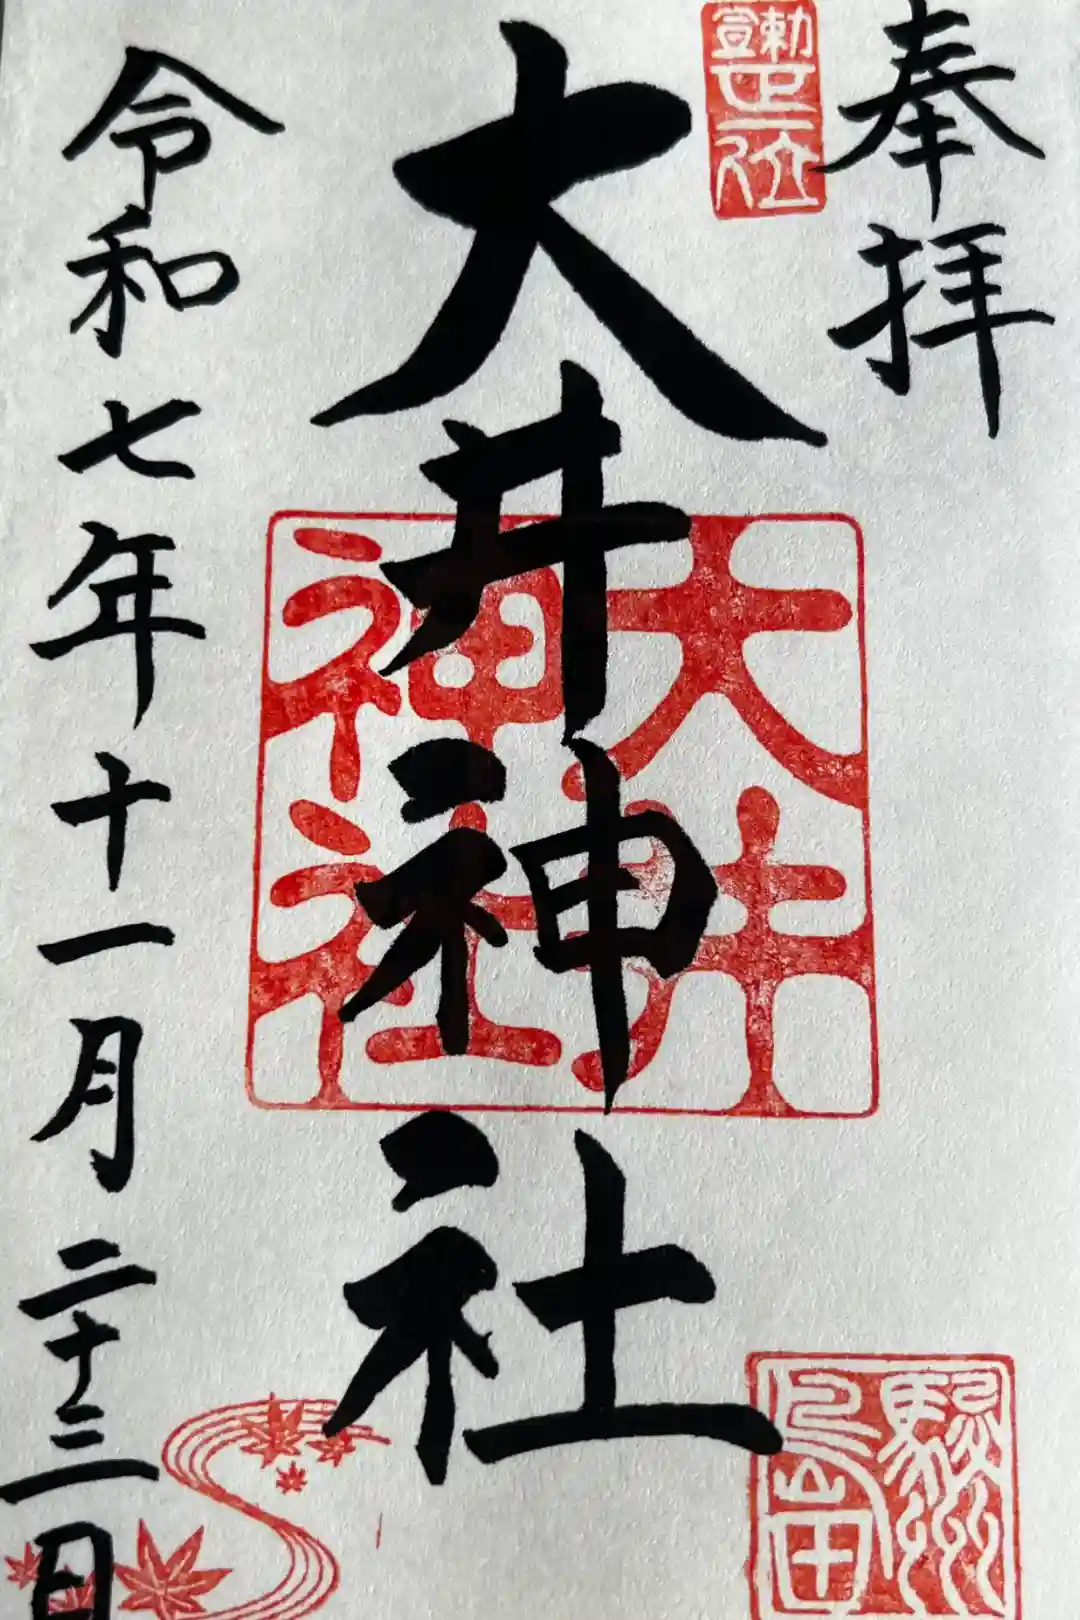 奉拝
勅宣正一位
大井神社
大井神社
駿州島田
令和七年十一月二十三日